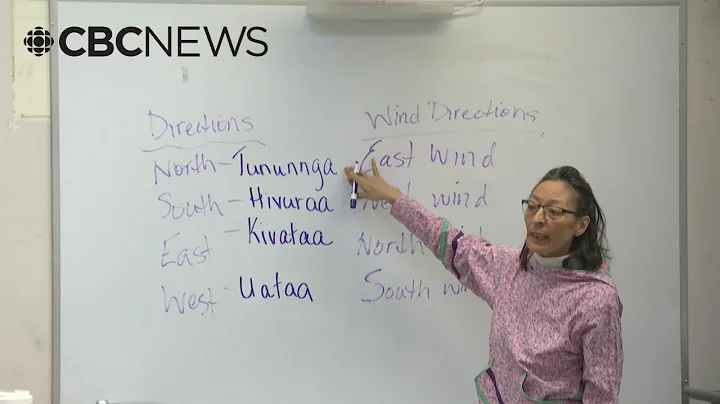 CBCNEWS
Directions
North - Tununnga
South - Hivuraa
East - Kivataa
West - Uataa
Wind Directions
East Wind
wind
North
South